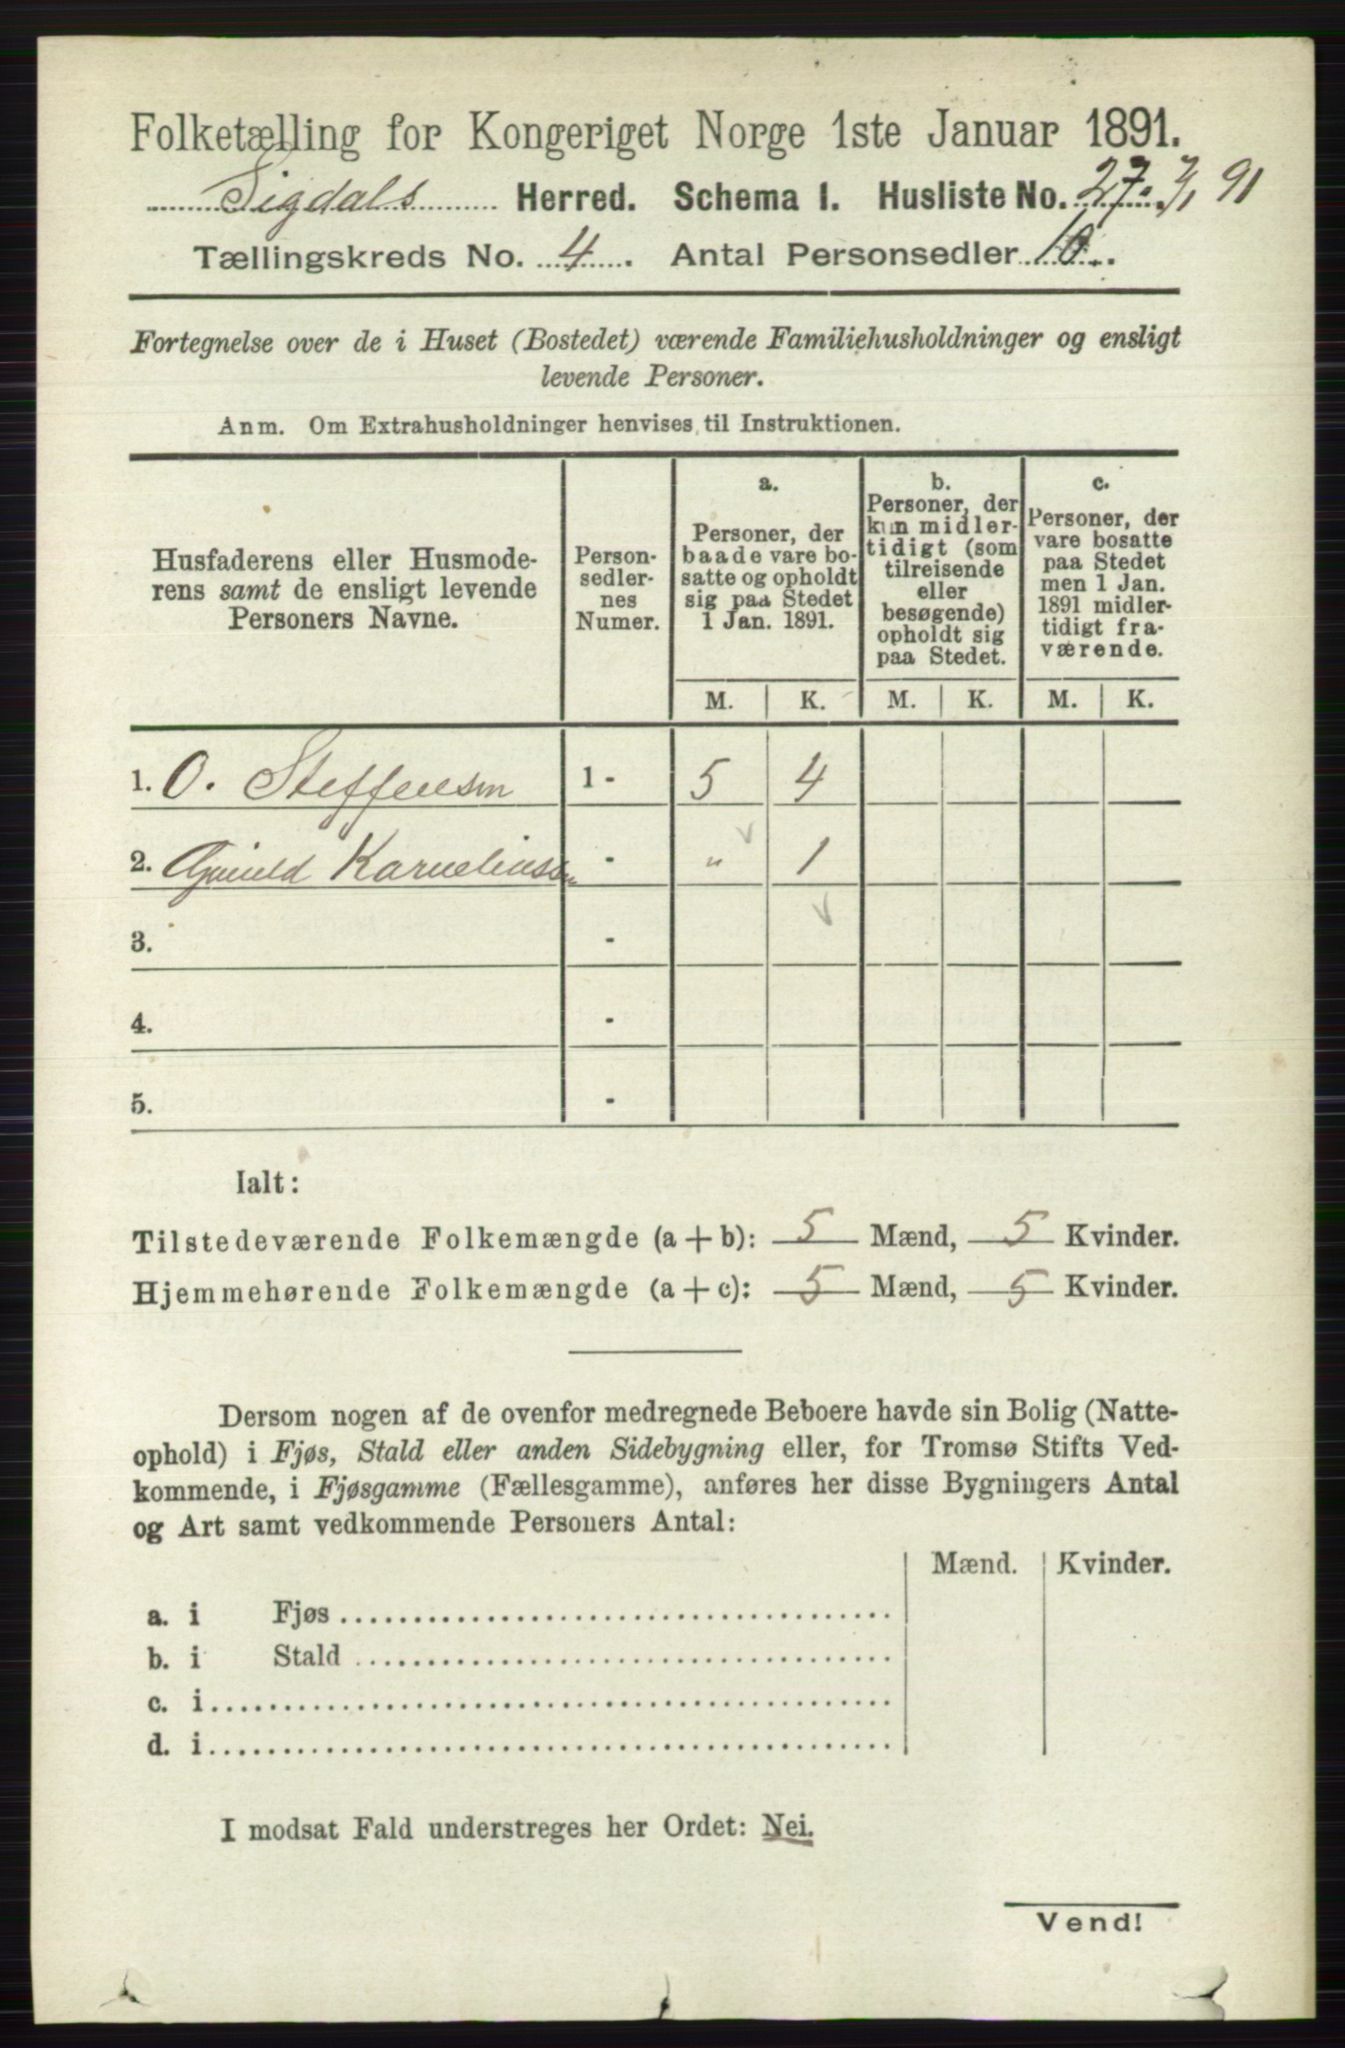 Folketælling for Kongeriget Norge 1ste Januar 1891.
Sigdals Herred. Schema 1. Husliste No. 27. 91
Tællingskreds No. 4. Antal Personsedler 10.
Fortegnelse over de i Huset (Bostedet) værende Familiehusholdninger og ensligt
levende Personer.
Anm. Om Extrahusholdninger henvises til Instruktionen.
Husfaderens eller Husmode-
rens samt de ensligt levende
Personers Navne.
Person-
sedler-
nes
Numer.
a.
Personer, der
baade vare bo-
satte og opholdt
sig paa Stedet
1 Jan. 1891.
b.
Personer, der
kun midler-
tidigt (som
tilreisende
eller
besøgende)
opholdt sig
paa Stedet.
c.
Personer, der
vare bosatte
paa Stedet
men 1 Jan.
1891 midler-
tidigt fra-
værende.
M. K. M. K. M. K.
1. O. Steffensen 1 - 5 4
2. Karneliuss - " 1
3. -
4. -
5. -
Ialt:
Tilstedeværende Folkemængde (a + b): 5 Mænd, 5 Kvinder.
Hjemmehørende Folkemængde (a + c): 5 Mænd, 5 Kvinder.
Dersom nogen af de ovenfor medregnede Beboere havde sin Bolig (Natte-
ophold) i Fjøs, Stald eller anden Sidebygning eller, for Tromsø Stifts Ved-
kommende, i Fjøsgamme (Fællesgamme), anføres her disse Bygningers Antal
og Art samt vedkommende Personers Antal:
Mænd. Kvinder.
a. i Fjøs
b. i Stald
c. i
d. i
I modsat Fald understreges her Ordet: Nei.
Vend!